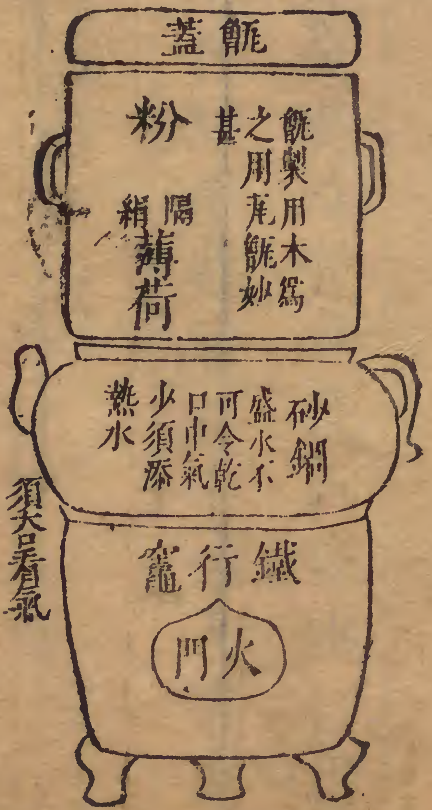 甑蓋
甑製用木爲
之用瓦甑妙
甚
粉
隔絹
薄荷
砂鍋
盛水不
可令乾
口中氣
少須添
熱水
須口看氣
鐵行竈
火門